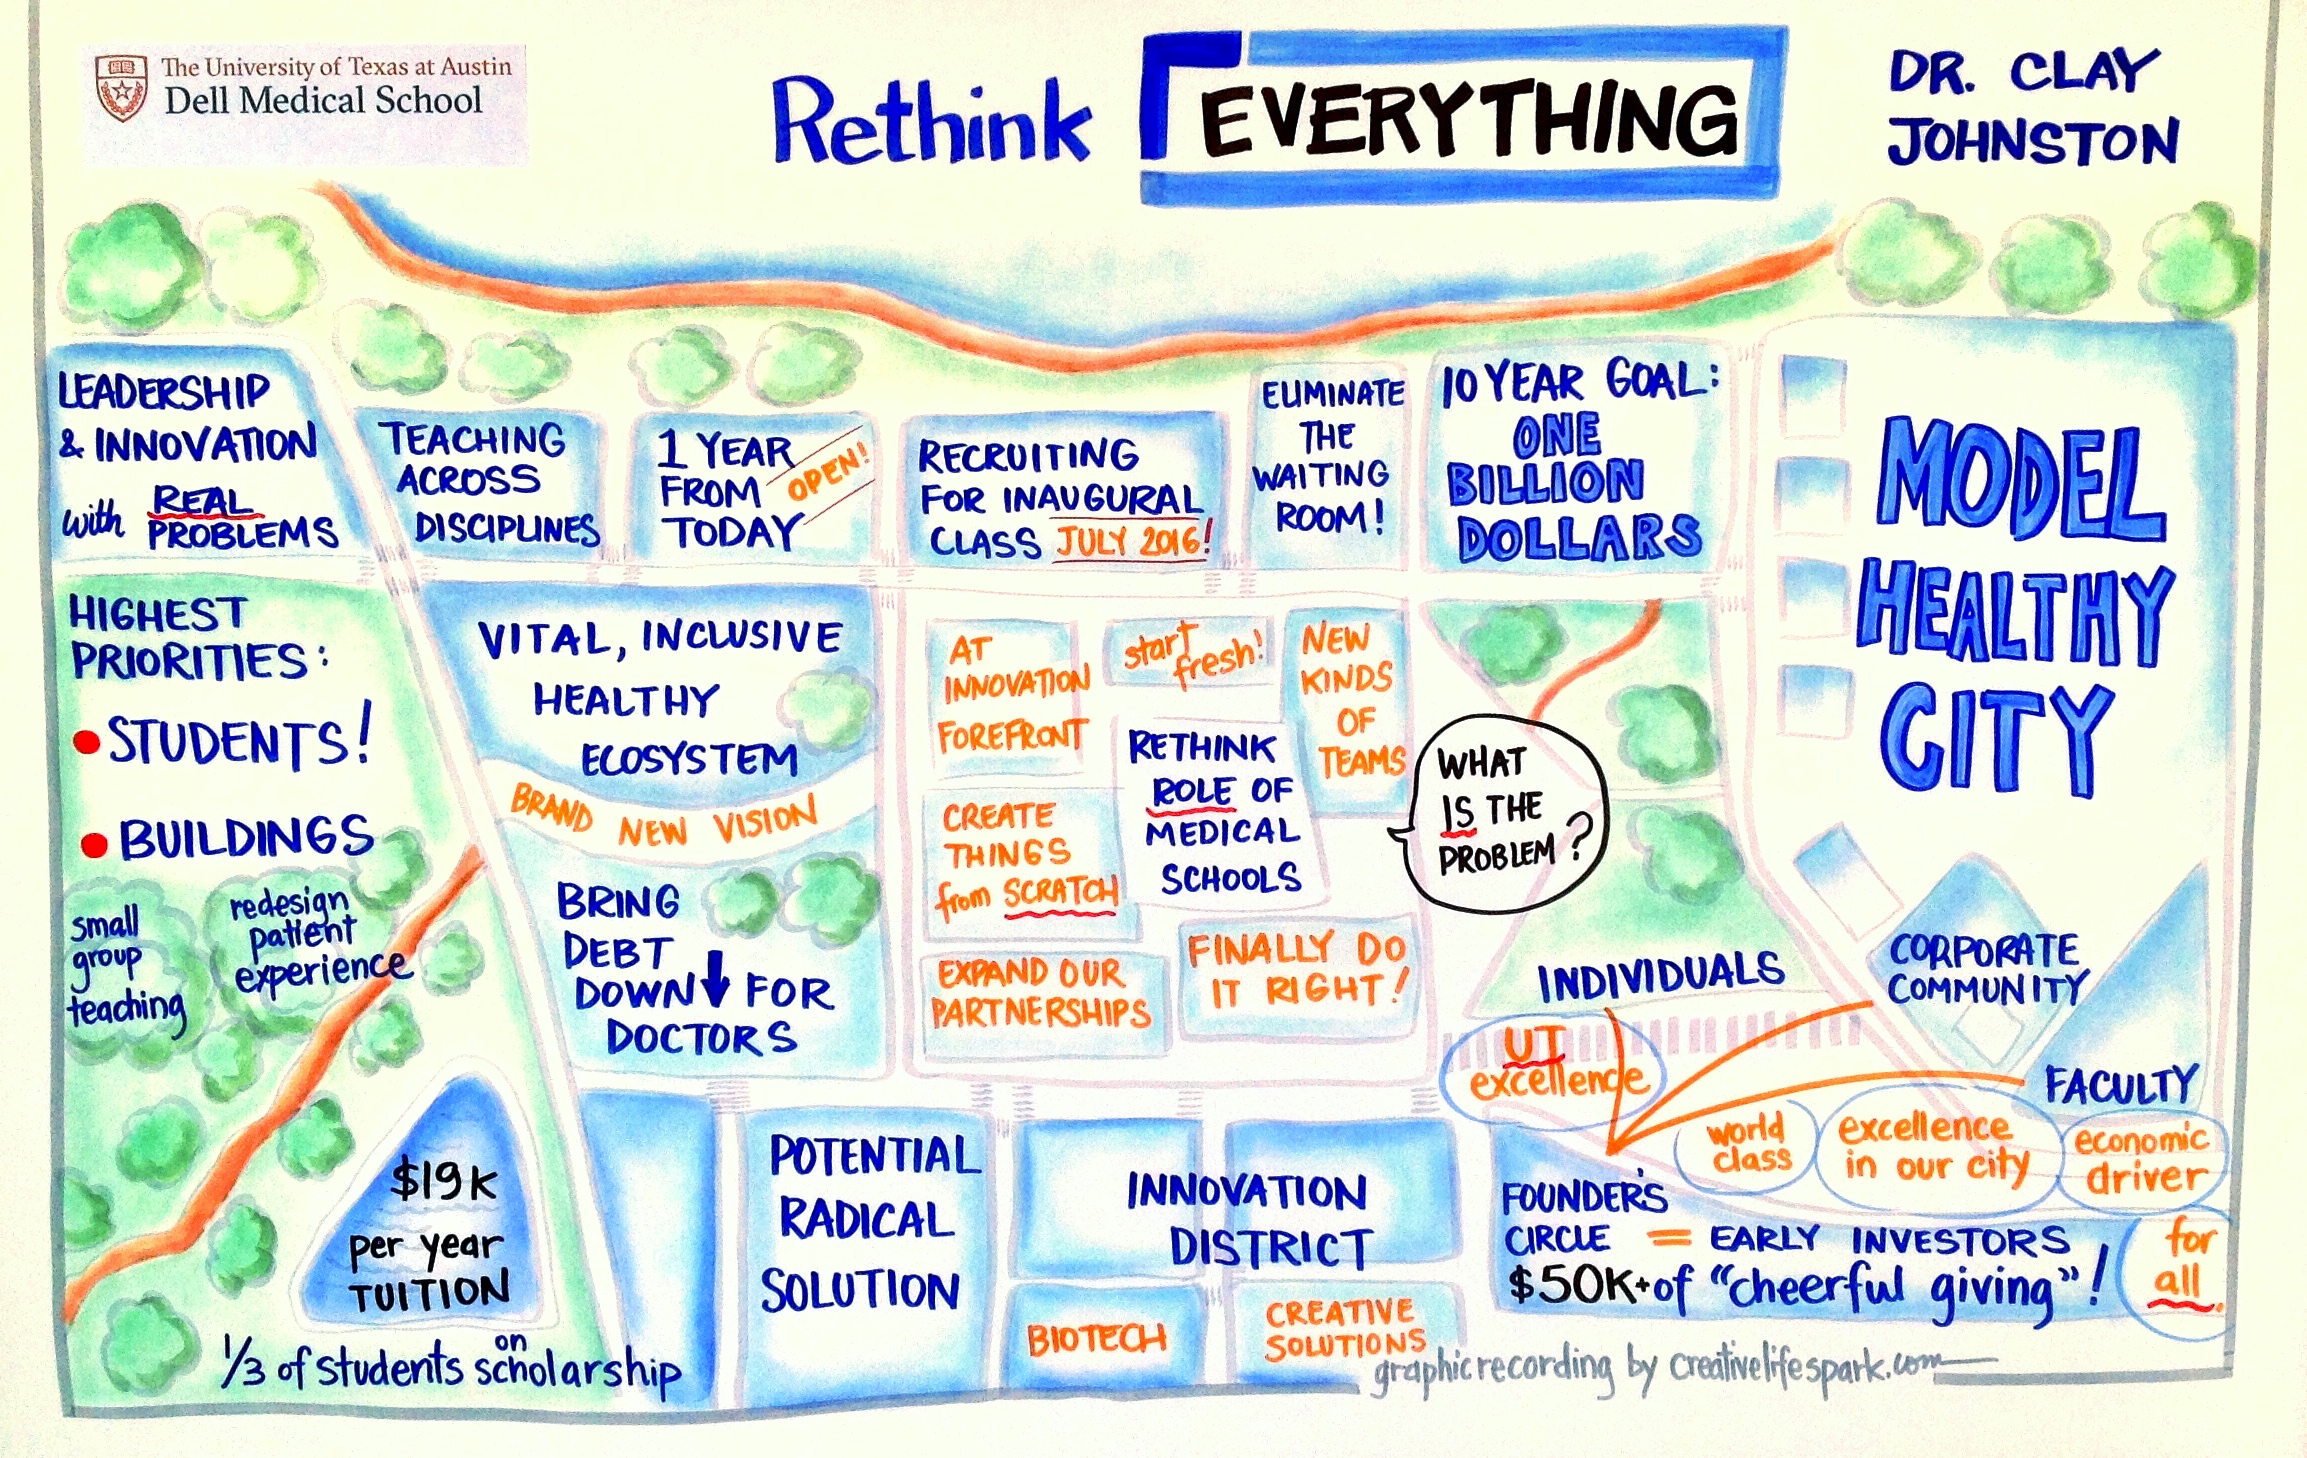 The University of Texas at Austin
Dell Medical School
Rethink EVERYTHING
DR. CLAY
JOHNSTON
LEADERSHIP
& INNOVATION
with REAL
PROBLEMS
TEACHING
ACROSS
DISCIPLINES
1 YEAR
FROM
TODAY
OPEN!
RECRUITING
FOR INAUGURAL
CLASS JULY 2016!
ELIMINATE
THE
WAITING
ROOM!
10 YEAR GOAL:
ONE
BILLION
DOLLARS
MODEL
HEALTHY
CITY
HIGHEST
PRIORITIES:
• STUDENTS!
• BUILDINGS
small
group
teaching
redesign
patient
experience
VITAL, INCLUSIVE
HEALTHY
ECOSYSTEM
BRAND NEW VISION
BRING
DEBT
DOWN FOR
DOCTORS
AT
INNOVATION
FOREFRONT
start
fresh!
NEW
KINDS
OF
TEAMS
RETHINK
ROLE OF
MEDICAL
SCHOOLS
CREATE
THINGS
from SCRATCH
EXPAND OUR
PARTNERSHIPS
FINALLY DO
IT RIGHT!
WHAT
IS THE
PROBLEM?
INDIVIDUALS
CORPORATE
COMMUNITY
FACULTY
UT
excellence
world
class
excellence
in our city
economic
driver
for
all.
FOUNDER'S
CIRCLE = EARLY INVESTORS
$50K+ of "cheerful giving"!
$19K
per year
TUITION
1/3 of students on scholarship
POTENTIAL
RADICAL
SOLUTION
INNOVATION
DISTRICT
BIOTECH
CREATIVE
SOLUTIONS
graphic recording by creativelifespark.com